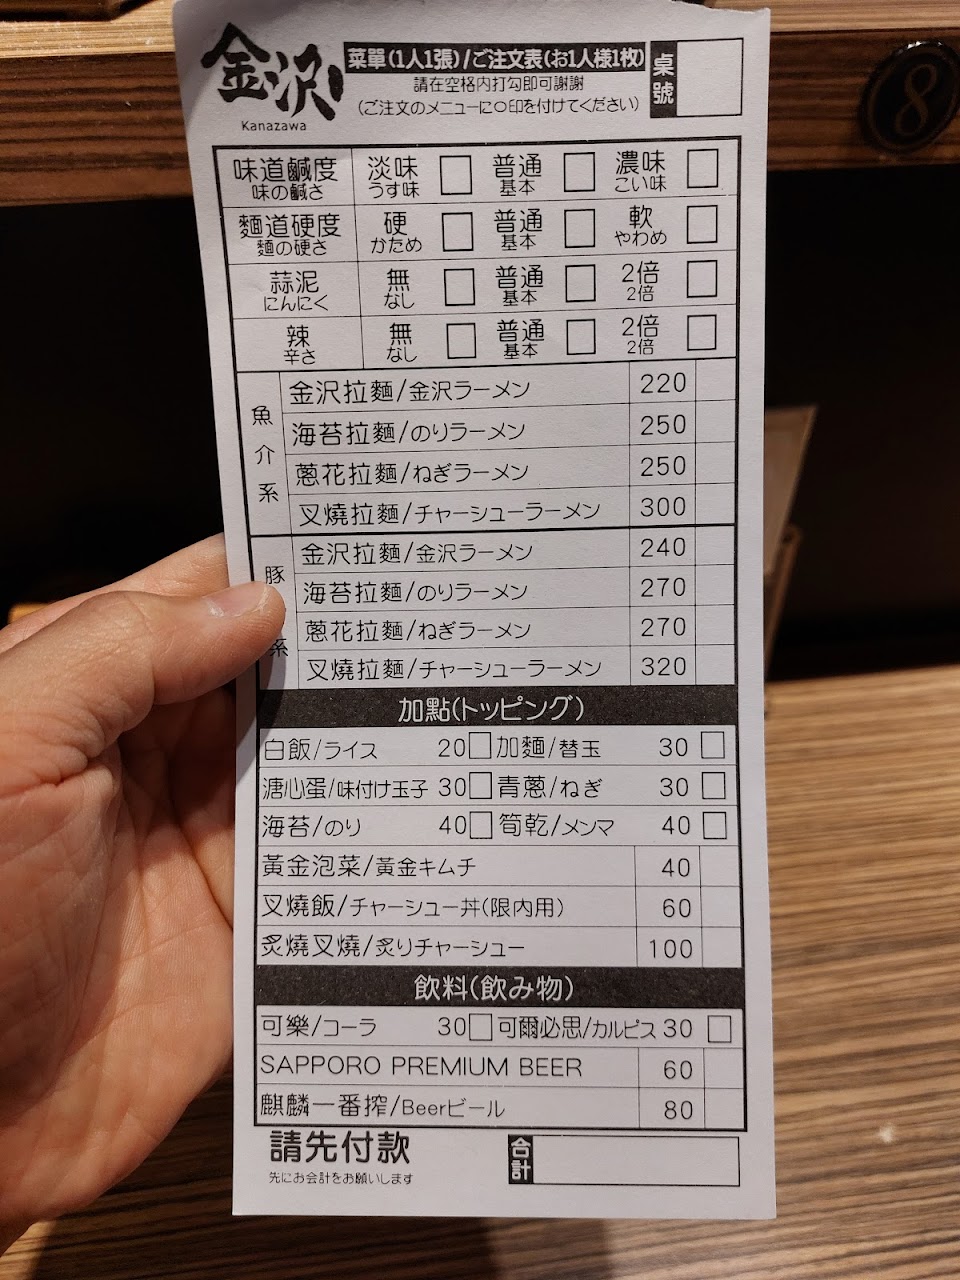 金沢
Kanazawa
菜單(1人1張)/ご注文表(お1人様1枚)
請在空格內打勾即可謝謝
(ご注文のメニューに○印を付けてください)
桌號
8
味道鹹度 淡味 普通 濃味
味の鹹さ うす味 基本 こい味
麵道硬度 硬 普通 軟
麵の硬さ かため 基本 やわめ
蒜泥 無 普通 2倍
にんにく なし 基本 2倍
辣 無 普通 2倍
辛さ なし 基本 2倍
魚介系
金沢拉麵/金沢ラーメン 220
海苔拉麵/のりラーメン 250
蔥花拉麵/ねぎラーメン 250
叉燒拉麵/チャーシューラーメン 300
豚 系
金沢拉麵/金沢ラーメン 240
海苔拉麵/のりラーメン 270
蔥花拉麵/ねぎラーメン 270
叉燒拉麵/チャーシューラーメン 320
加點(トッピング)
白飯/ライス 20 加麵/替玉 30
溏心蛋/味付け玉子 30 青蔥/ねぎ 30
海苔/のり 40 筍乾/メンマ 40
黃金泡菜/黃金キムチ 40
叉燒飯/チャーシュー丼(限內用) 60
炙燒叉燒/炙りチャーシュー 100
飲料(飲み物)
可樂/コーラ 30 可爾必思/カルピス 30
SAPPORO PREMIUM BEER 60
麒麟一番搾/Beerビール 80
請先付款
先にお会計をお願いします
合計